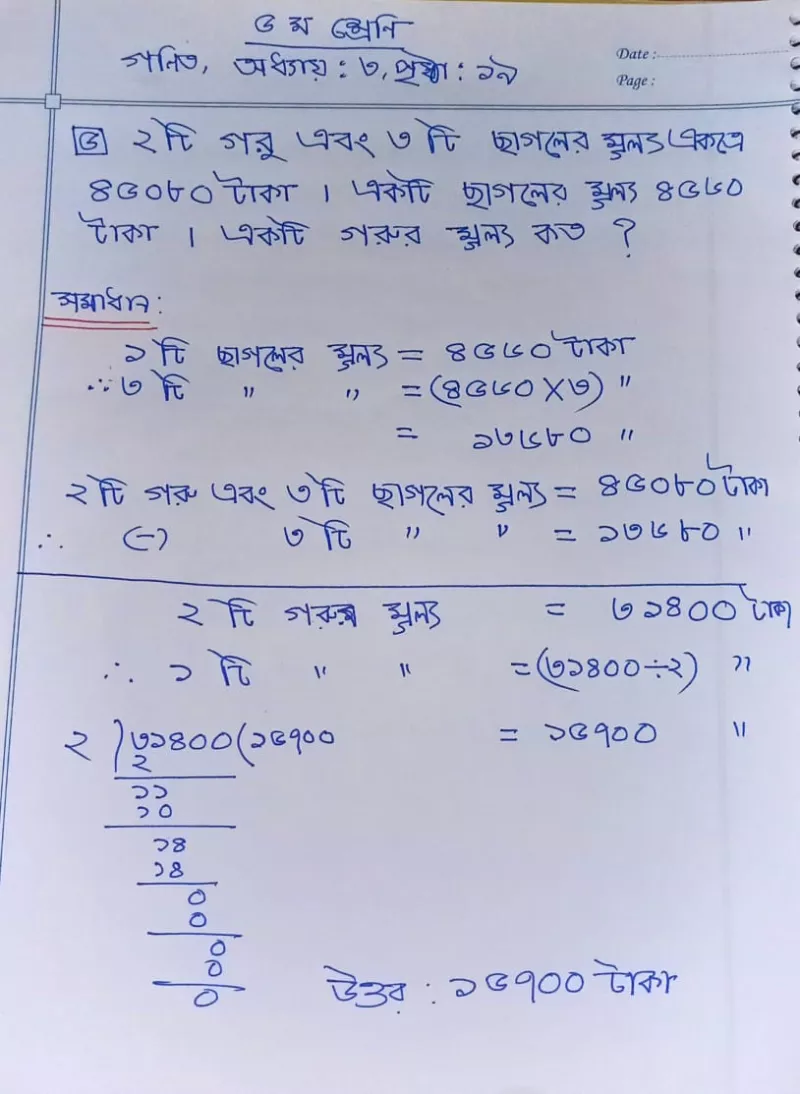 ৫ ম শ্রেনি
গনিত, অধ্যায় : ৩, পৃষ্ঠা : ১৯
Date :
Page :
৫ ২টি গরু এবং ৩ টি ছাগলের মুল্য একত্রে
৪৫০৮০ টাকা । একটি ছাগলের মুল্য ৪৫৬০
টাকা । একটি গরুর মুল্য কত ?
সমাধান :
১ টি ছাগলের মুল্য = ৪৫৬০ টাকা
∴ ৩ টি " " = (৪৫৬০ X ৩) "
= ১৩৬৮০ "
২টি গরু এবং ৩টি ছাগলের মুল্য = ৪৫০৮০ টাকা
∴ (-) ৩ টি " " = ১৩৬৮০ "
২ টি গরুর মুল্য = ৩১৪০০ টাকা
∴ ১ টি " " = (৩১৪০০ ÷ ২) "
২ ) ৩১৪০০ ( ১৫৭০০ = ১৫৭০০ "
২
১১
১০
১৪
১৪
০
০
০
০
০
উত্তর : ১৫৭০০ টাকা